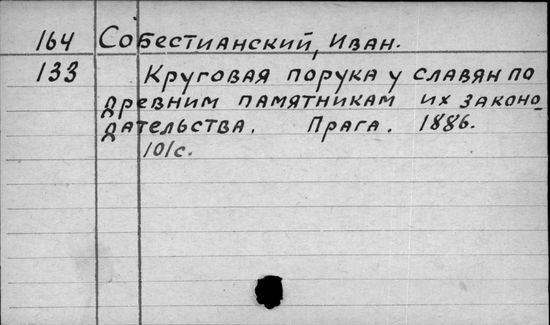 164 Собестианский, Иван.
133 Круговая порука у славян по
древним памятникам их законо
дательства. Прага. 1886.
101с.